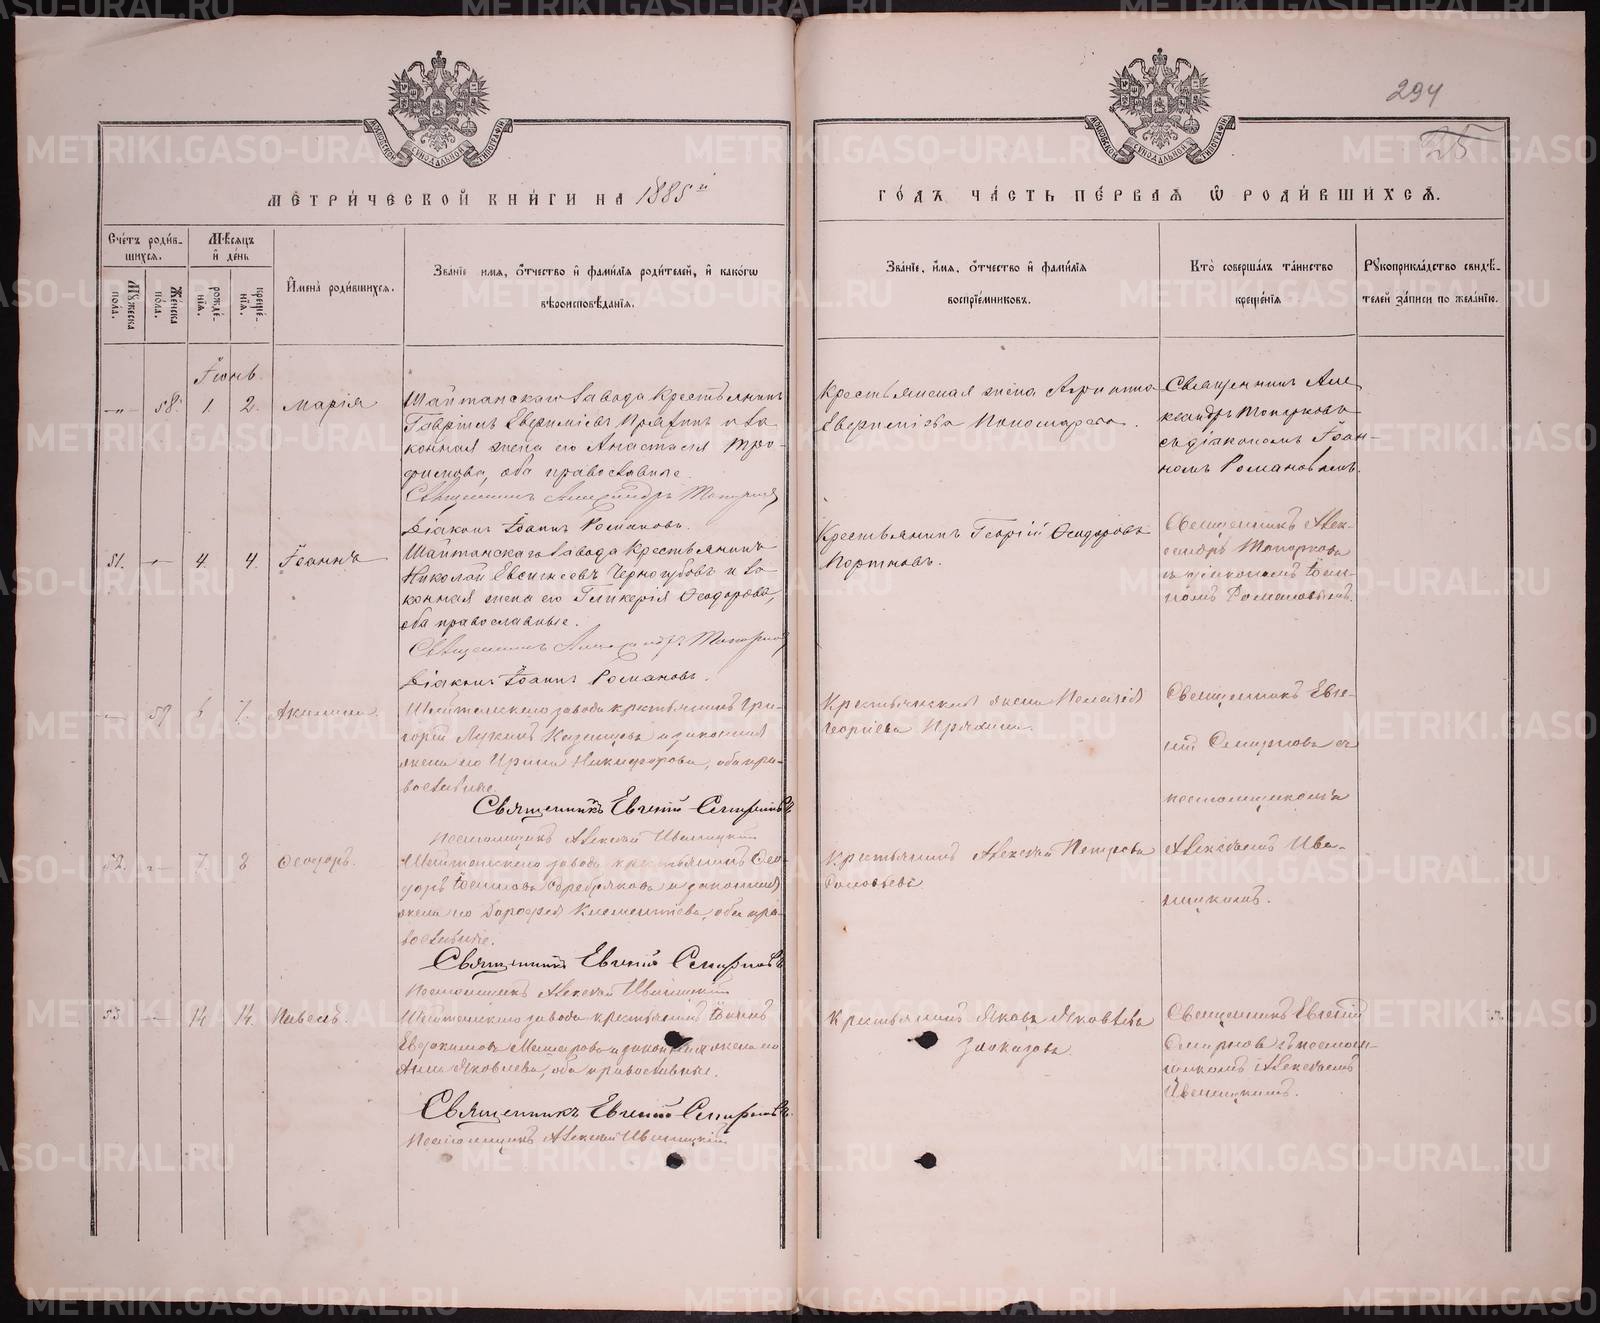 294
25
МОСКОВСКОЙ СѴНОДАЛЬНОЙ ТИПОГРАФІИ
МОСКОВСКОЙ СѴНОДАЛЬНОЙ ТИПОГРАФІИ
МЕТРИ́ЧЕСКОЙ КНИ́ГИ НА 1885й
ГО́ДЪ ЧА́СТЬ ПЕ́РВАЯ Ѡ РОДИ́ВШИХСѦ.
Сче́тъ роди́в-
шихся.
Мѣ́сяцъ
и҆ де́нь
Му́жеска пола.
Же́нска пола.
рожде́-
нїя.
креще́-
нїя.
И҆мена̀ роди́вшихся.
Зва́нїе имя, ѻ҆́тчество и҆ фами́лїя роди́телей, и҆ како́гѡ
вѣроисповѣ́данїя.
Зва́нїе, и҆́мя, ѻ҆́тчество и҆ фами́лїя
воспрїе́мниковъ.
Кто̀ соверша́лъ та́инство
креще́нїя
Рꙋкоприкла́дство свидѣ́-
телей за́писи по жела́нїю.
Іюнь.
—"— 58. 1. 2. Марія
Шайтанскаго завода Крестьянинъ
Гавріилъ Евѳиміевъ Прягинъ и за-
конная жена его Анастасія Тро-
фимова, оба православные.
Священникъ Александръ Топорковъ
Діаконъ Іоаннъ Романовъ.
Крестьянская жена
Евѳиміева Пономарева.
Священникъ Але-
ксандръ Топорковъ
съ діакономъ Іоан-
номъ Романовымъ.
51. —"— 4. 4. Іоаннъ
Шайтанскаго завода Крестьянинъ
Николай Евсигнеевъ Черногубовъ и за-
конная жена его Гликерія Ѳеодорова,
оба православные.
Священникъ Александръ Топорковъ
Діаконъ Іоаннъ Романовъ.
Крестьянинъ Георгій Ѳеодоровъ
Портновъ.
Священникъ Алек-
сандръ Топорковъ
съ діакономъ Іоан-
номъ Романовымъ.
59 7. Акилина.
Шайтанскаго завода крестьянинъ Гри-
горій Лукинъ Казанцевъ и законная
жена его Ирина Никифорова, оба пра-
вославные.
Священникъ Евгеній Смирновъ.
Псаломщикъ Алексѣй Иваницкій
Крестьянская жена Пелагія
Георгіева Прягина.
Священникъ Евге-
ній Смирновъ съ
псаломщикомъ
Алексѣемъ Ива-
ницкимъ.
52. —"— 7. 8 Ѳеодоръ.
Шайтанскаго завода, крестьянинъ Ѳео-
доръ Іоанновъ Серебряковъ и законная
жена его Дорофея Климентіева, оба пра-
вославные.
Священникъ Евгеній Смирновъ
Псаломщикъ Алексѣй Иваницкій
Крестьянинъ Алексѣй Петровъ
Соловьевъ
53 —"— 14 14. Павелъ.
Шайтанскаго завода крестьянинъ Іоаннъ
Евдокимовъ и законная жена его
Анна Яковлева, оба православные.
Священникъ Евгеній Смирновъ.
Псаломщикъ Алексѣй Иваницкій
Крестьянинъ Яковъ Яковлевъ
Священникъ Евгеній
Смирновъ съ псалом-
щикомъ Алексѣемъ
Иваницкимъ.
METRIKI.GASO-URAL.RU